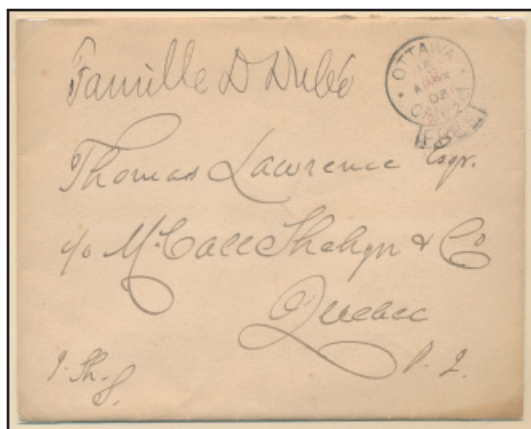 Famille D Dubé
OTTAWA
02
CANADA
FREE
Thomas Lawrence Esqr.
c/o McCall Shehyn & Co
Quebec
P. Q.